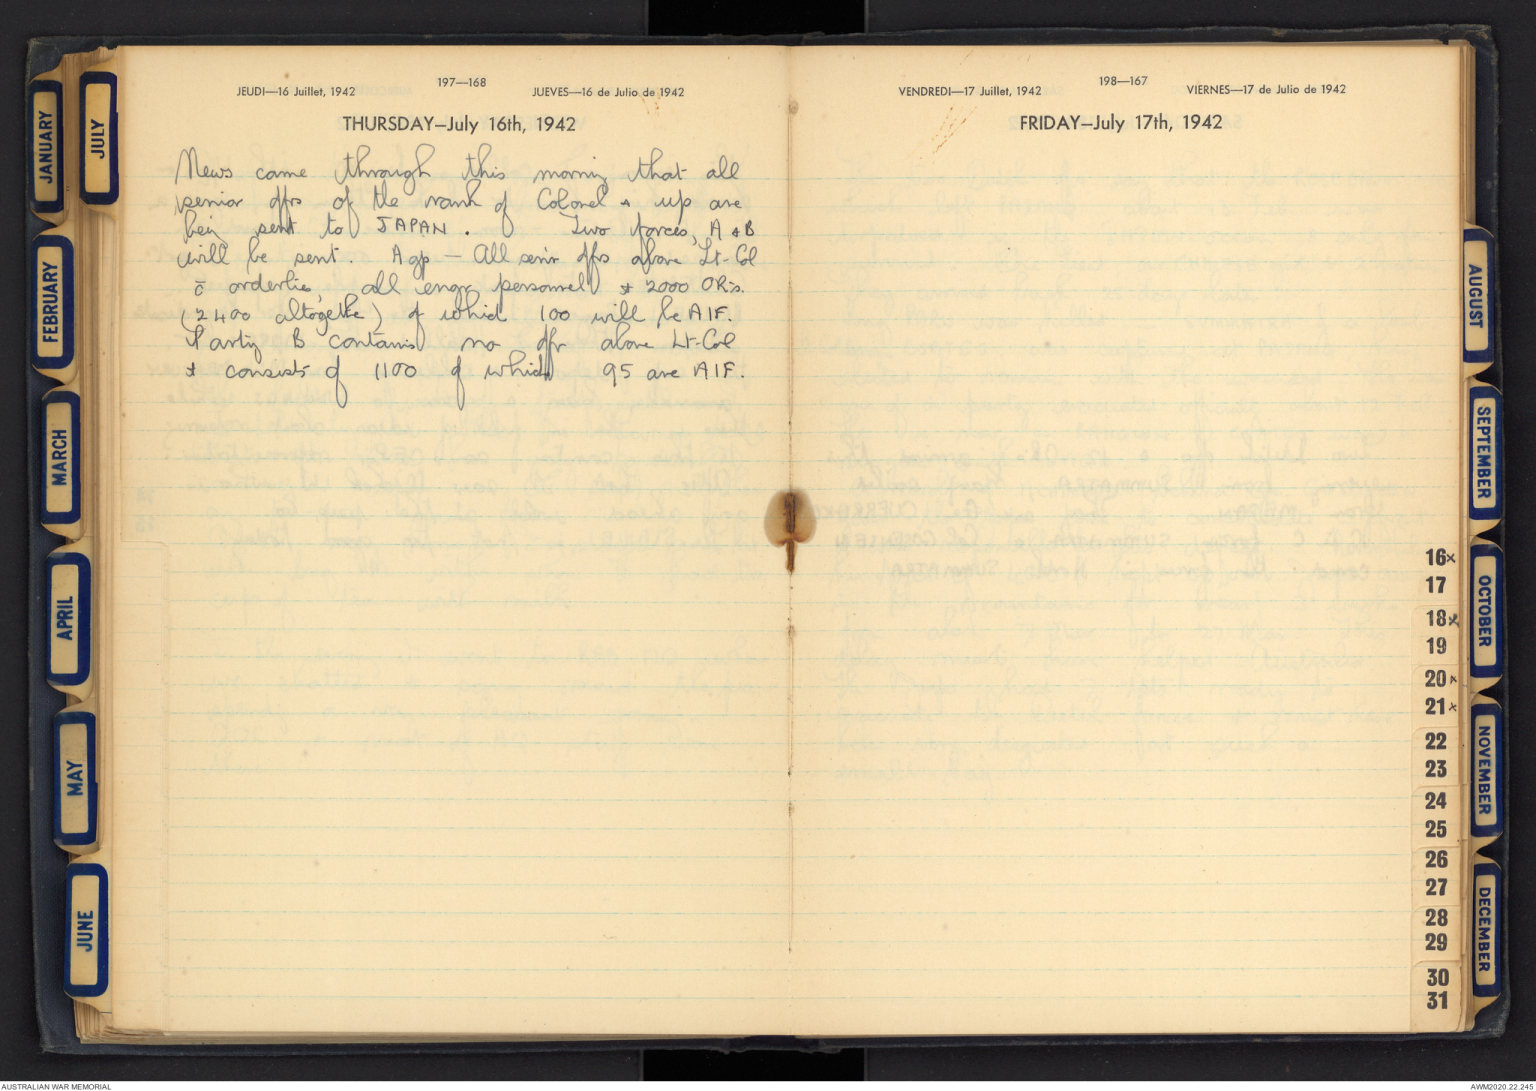 JANUARY
FEBRUARY
MARCH
APRIL
MAY
JUNE
JULY
197—168
JEUDI—16 Juillet, 1942
JUEVES—16 de Julio de 1942
THURSDAY—July 16th, 1942
News came through this morning that all
senior offrs of the rank of Colonel & up are
being sent to JAPAN. Two forces, A & B
will be sent. A gp — All senior offrs above Lt-Col
c̄ orderlies, all engr personnel & 2000 ORs.
(2400 altogether) of which 100 will be AIF.
Party B contains no offr above Lt-Col
& consists of 1100 of which 95 are AIF.
198—167
VENDREDI—17 Juillet, 1942
VIERNES—17 de Julio de 1942
FRIDAY—July 17th, 1942
16x
17
18x
19
20x
21x
22
23
24
25
26
27
28
29
30
31
AUGUST
SEPTEMBER
OCTOBER
NOVEMBER
DECEMBER
AUSTRALIAN WAR MEMORIAL
AWM2020.22.245